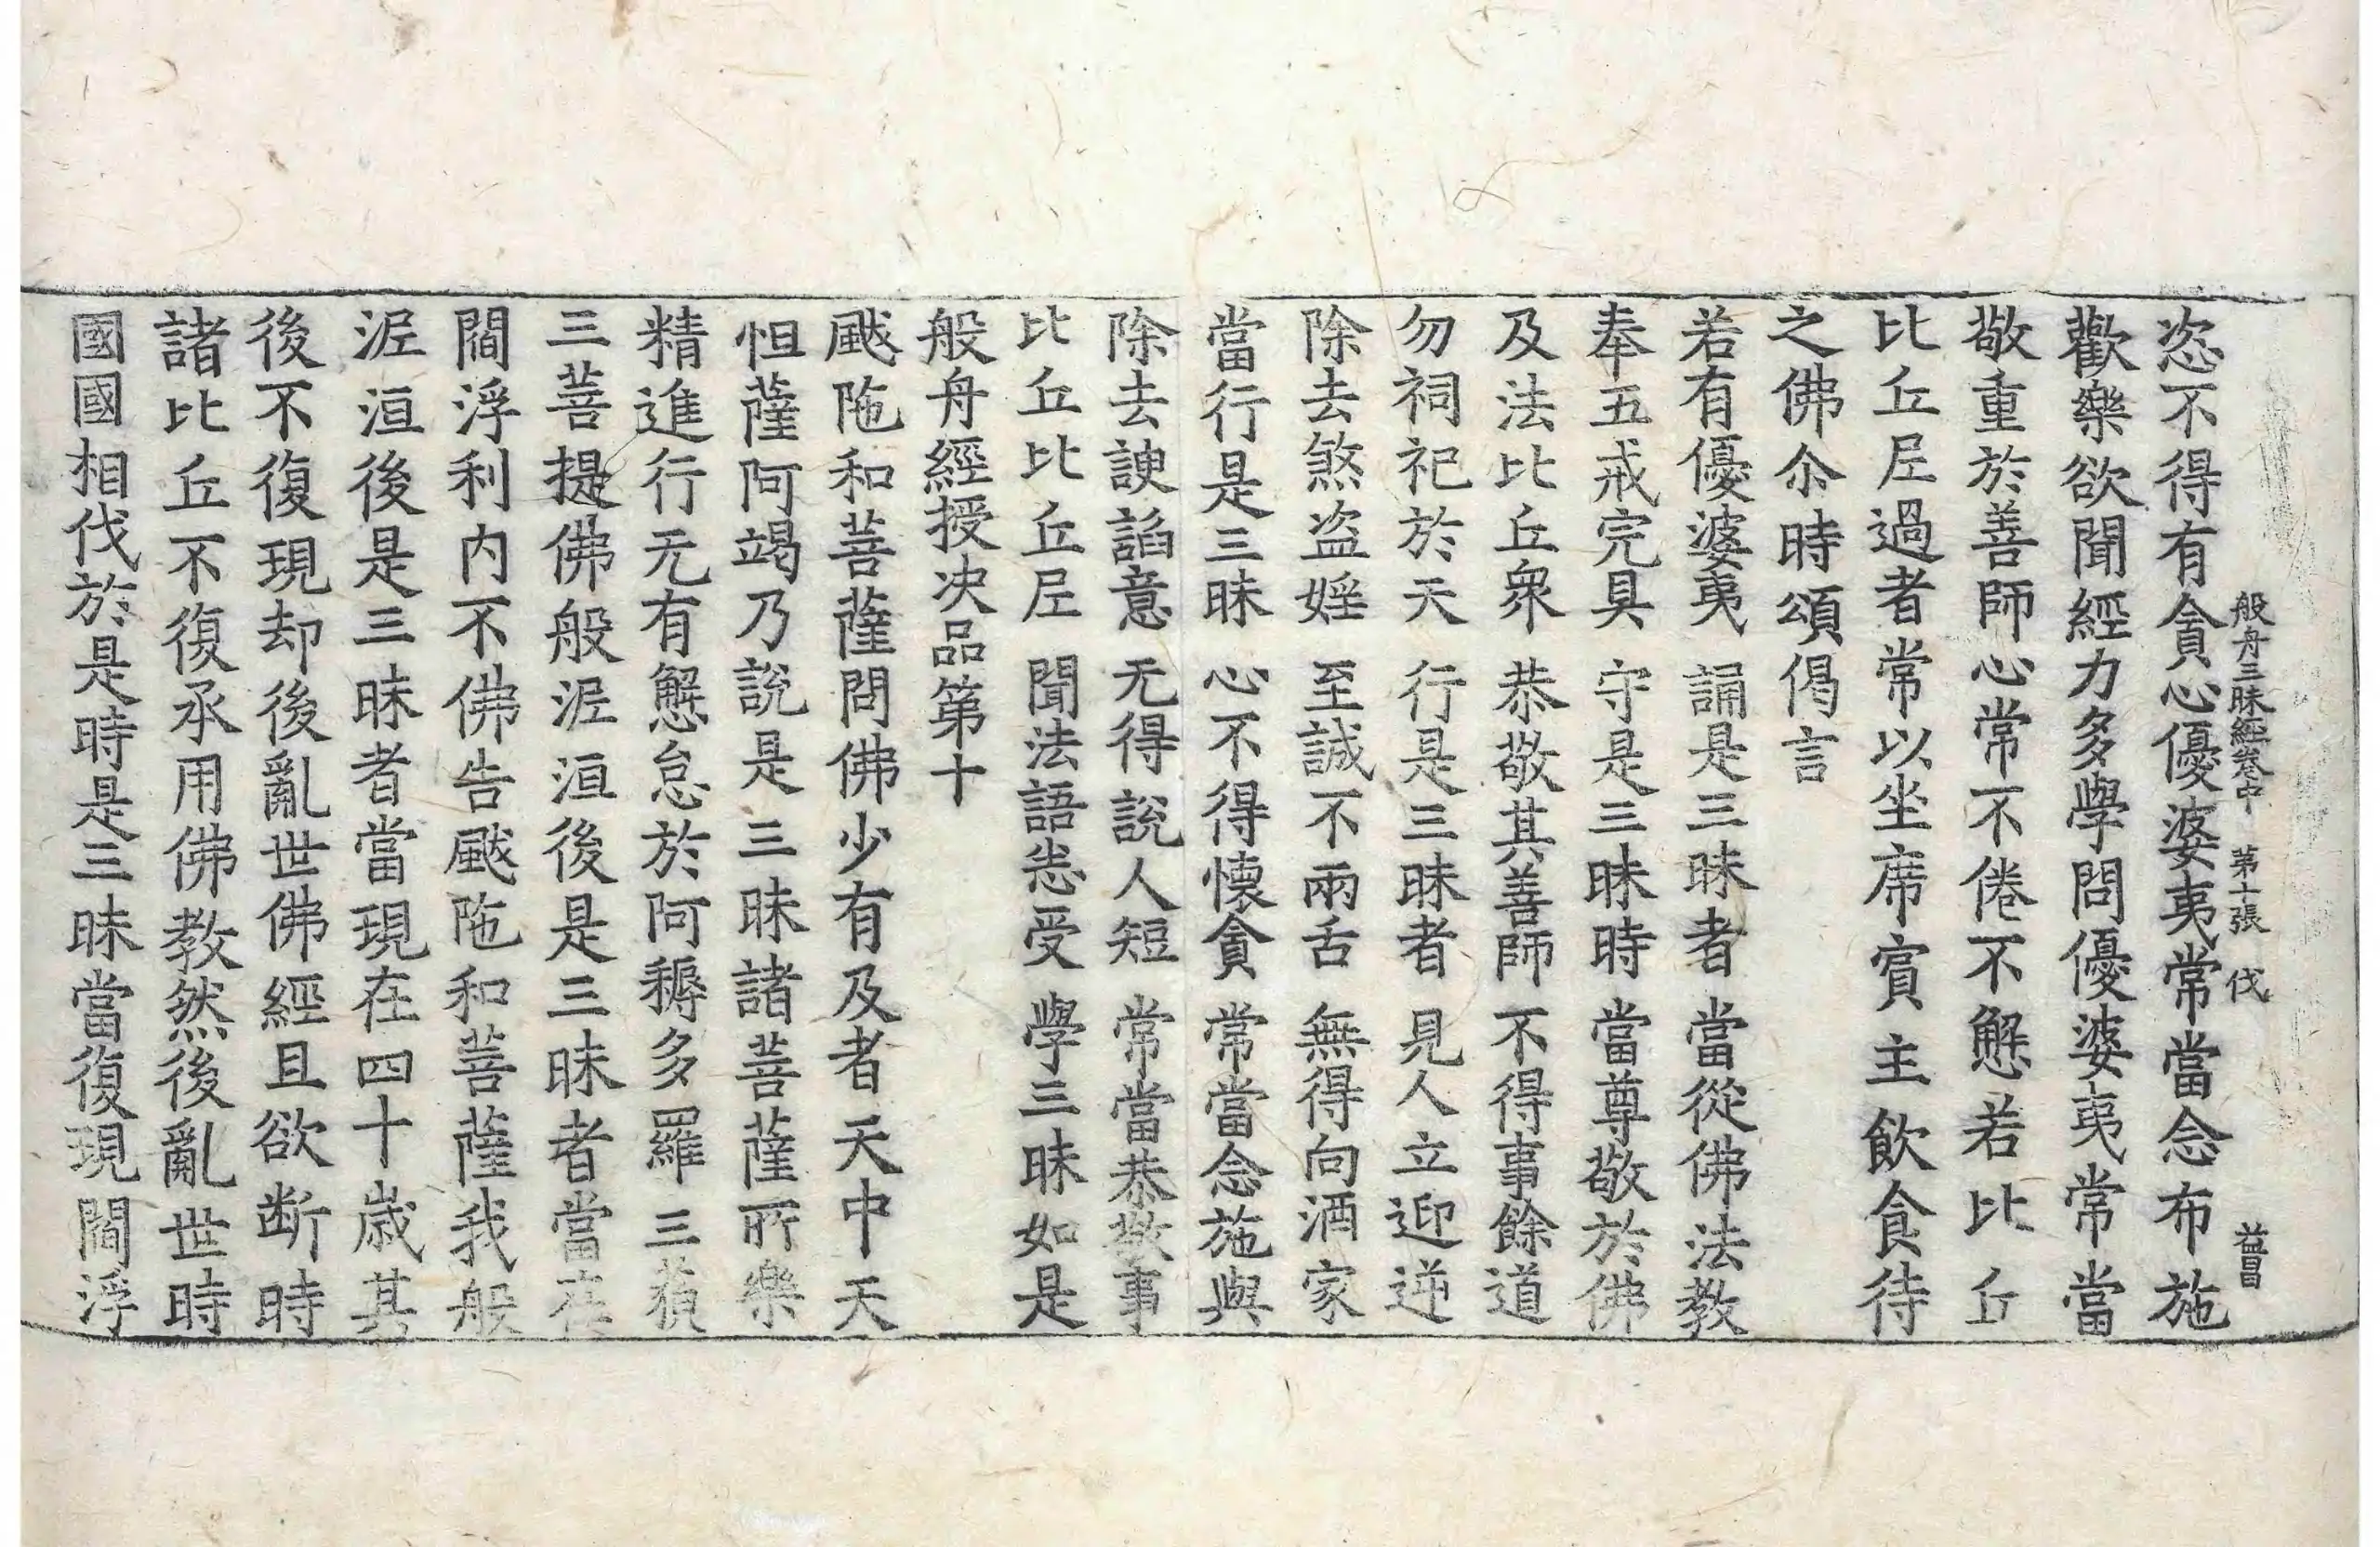 般舟三昧經卷中 第十張 伐 益昌
恣不得有貪心優婆夷常當念布施
歡樂欲聞經力多學問優婆夷常當
敬重於善師心常不倦不懈若比丘
比丘尼過者常以坐席賓主飲食待
之佛尒時頌偈言
若有優婆夷 誦是三昧者 當從佛法教
奉五戒完具 守是三昧時 當尊敬於佛
及法比丘衆 恭敬其善師 不得事餘道
勿祠祀於天 行是三昧者 見人立迎逆
除去煞盜婬 至誠不兩舌 無得向酒家
當行是三昧 心不得懷貪 常當念施與
除去諛諂意 无得說人短 常當恭敬事
比丘比丘尼 聞法語悉受 學三昧如是
般舟經授决品第十
颰陁和菩薩問佛少有及者天中天
怛薩阿竭乃說是三昧諸菩薩所樂
精進行无有懈怠於阿耨多羅三藐
三菩提佛般泥洹後是三昧者當在
閻浮利内不佛告颰陁和菩薩我般
泥洹後是三昧者當現在四十歲其
後不復現却後亂世佛經且欲断時
諸比丘不復承用佛教然後亂世時
國國相伐於是時是三昧當復現閻浮